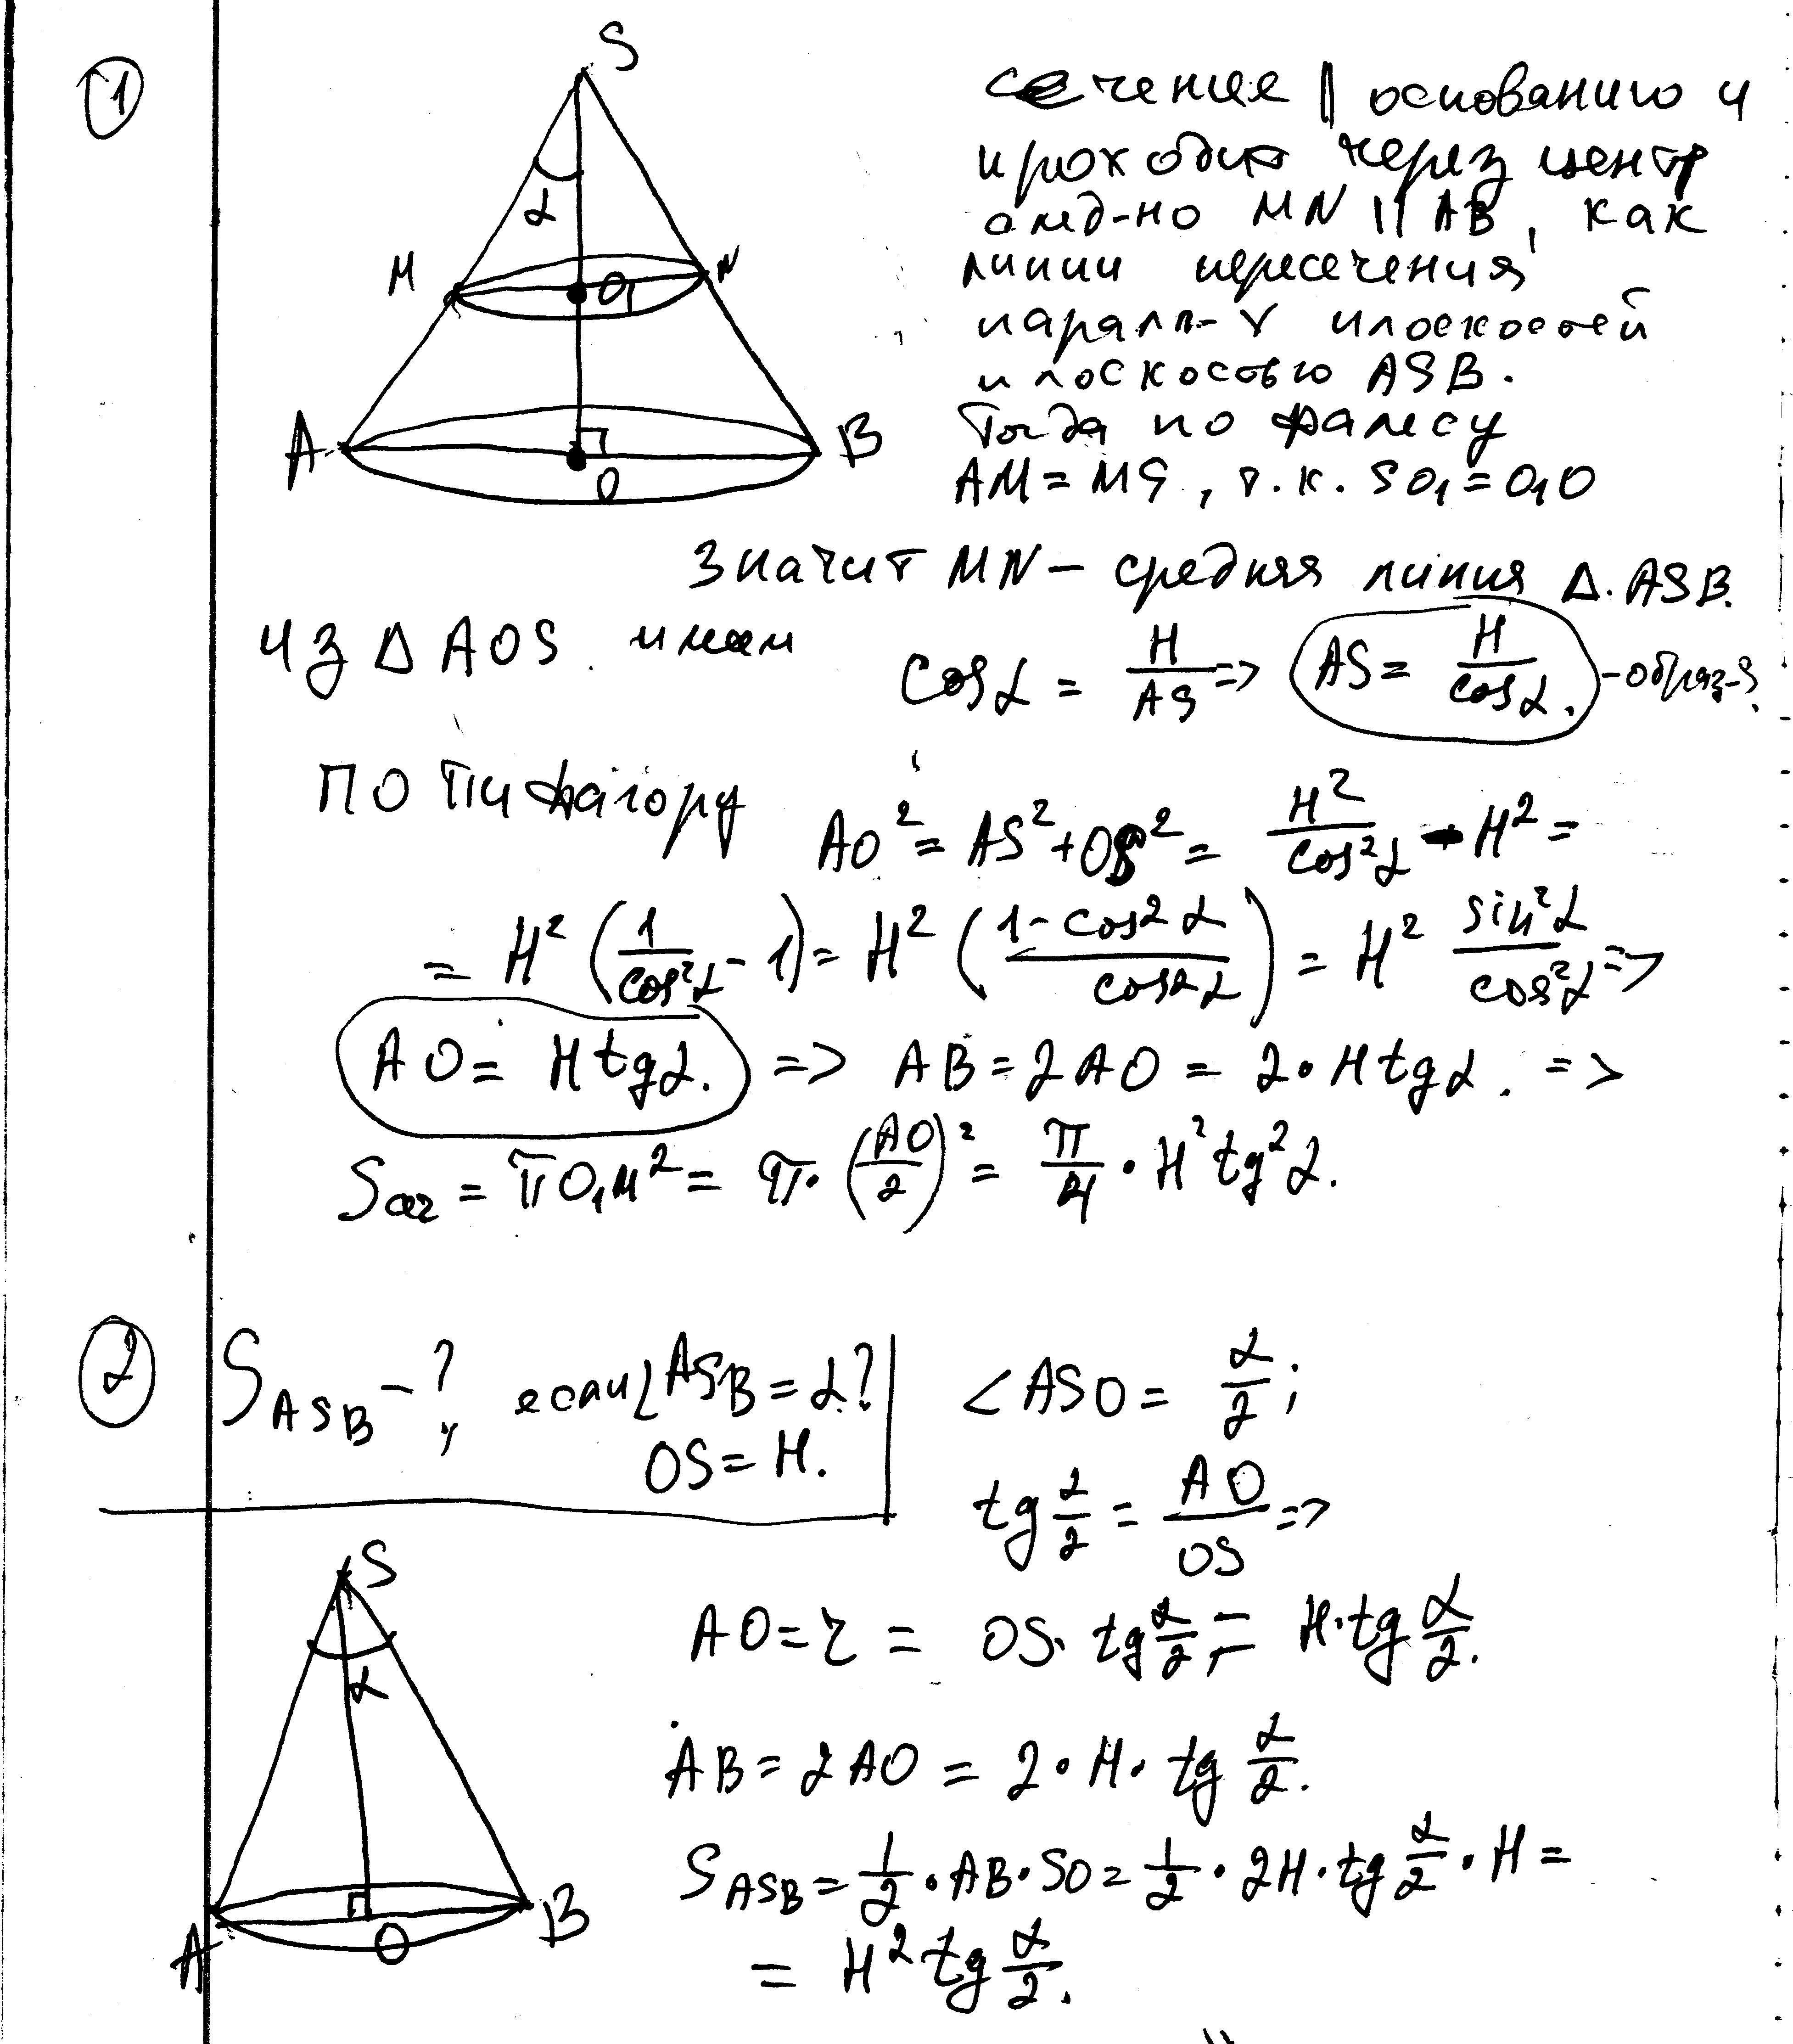 1
S
α
M
N
O₁
A
B
O
сечение || основанию и
проходит через центр
след-но MN || AB, как
линии пересечения
паралл-х плоскостей
плоскостью ASB.
Тогда по Фалесу
AM = MS, т.к. SO₁ = O₁O
Значит MN – средняя линия Δ. ASB.
из Δ AOS имеем
cos α = H/AS => AS = H/cos α. - образ-я.
По Пифагору
AO² = AS² + OS² = H²/cos²α - H² =
= H² (1/cos²α - 1) = H² (1 - cos²α / cos²α) = H² sin²α/cos²α =>
AO = H tg α. => AB = 2AO = 2 · H tg α. =>
Sсеч = π O₁M² = π · (AO/2)² = π/4 · H² tg² α.
2
S ASB - ?, если ∠ASB = α?
OS = H.
∠ASO = α/2;
tg α/2 = AO/OS =>
S
α
A
O
B
AO = r = OS · tg α/2 = H · tg α/2.
AB = 2AO = 2 · H · tg α/2.
S ASB = 1/2 · AB · SO = 1/2 · 2H · tg α/2 · H =
= H² tg α/2.